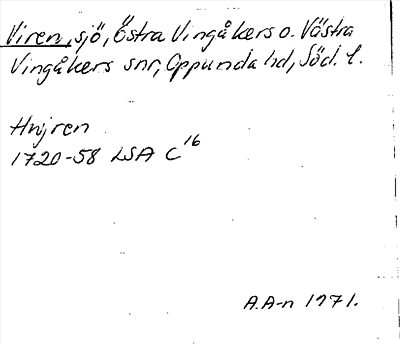 Viren, sjö, Östra Vingåkers o. Västra
Vingåkers snr, Oppunda hd, Söd. l.
Hwjren
1720-58 LSA C16
A.A-n 1971.